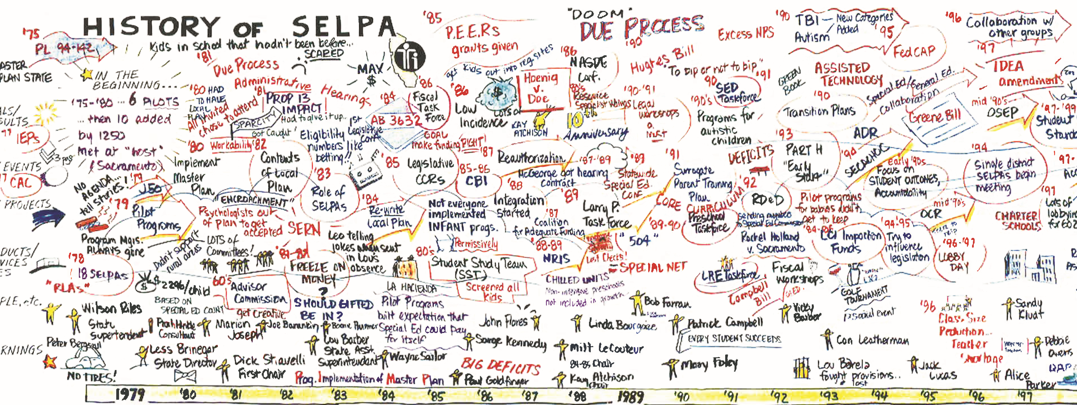 HISTORY OF SELPA
'75
PL 94-142
STER PLAN STATE
Kids in school that hadn't been before...
SCARED
IN THE
BEGINNING...
'75-'80 ... 6 PILOTS
... then 10 added
by 1250
Met at "host"
(Sacramento)
IEPs
EVENTS
CAC
PROJECTS
NO AGENDA-
'79
J50
Pilot
Programs
Program Mgrs.
ALWAYS gone
'78
18 SELPAS
"RLAs"
'81
Due Process
Administrative
Hearings
'80 HAD
TO HAVE
PROP 13
IMPACT
Had to give it up..
SPARCITY
Got Caught!
'80 Workability
'82
Implement
Master
Plan
Contents
of Local
Plan
ENCROACHMENT
Psychologists out
of Plan to get
accepted
SERN
LOTS OF
Committees!
Didn't speak
rural areas
$2296/child
BASED ON
SPECIAL ED COUNT
60's
Advisor
Commission
get Creative
FREEZE ON
MONEY
?
SHOULD GIFTED
BE IN?
MAX
$
'84
AB 3632
1st
Legislative
Conf.
Eligibility
numbers like
betting!!
'83
Role of
SELPAs
'84
Re-write
Local Plan
Leo telling
jokes when sent
in Lou's
absence
LA HACIENDA
Pilot Programs
built expectation that
Special Ed could pay
for itself
'85
P.E.E.R.S
grants given
get kids out into reg. sites
'86
Fiscal
Task
Force
GOAL
make finding RIGHT
'85 Legislative
CCRs
85-86
CBI
'86
Low
Incidence
LOTS OF
$
Hoenig
v.
Doe
KAY
ATCHISON
'86
NASDE
Conf.
10
Anniversary
'87
Reauthorization
'88
McGeorge gar hearing
contract
'87-'89
Not everyone
implemented
INFANT progs.
Integration
Started
'87
Coalition
for Adequate Funding
Permissively
80's
Student Study Team
(SST)
Screened all
kids
'88-89
NRIS
Larry P.
Task Force
"504"
Last Elects!
SPECIAL NET
CHILLED UNITS
Non-intensive preschools
not included in growth
"DOOM"
DUE PROCESS
'90
Hughes Bill
"To bip or not to bip"
'90-'91
Legal
workshops
a
must
Statewide
Special Ed.
Conf.
CORE
CURRICULUM
'91
Surrogate
Parent Training
Plan
'89-90
Preschool
Taskforce
Excess NPS
'90
SED
Taskforce
'91
90's
Programs for
autistic
children
DEFICITS
'92
RD&D
Sending members
to Special Ed Committee
Rachel Holland
v. Sacramento
LRE Taskforce
Campbell
Bill
Fiscal
workshops
'90
TBI - New Categories
Autism Added
'95
Fed CAP
ASSISTED
TECHNOLOGY
GREEN
BOOK
Special Ed/General Ed.
Collaboration
Transition Plans
ADR
'93
PART H
"Early
Start"
'94
SEEDHOC
Pilot programs
for babies didn't
get to keep
OCI Impaction
Funds
GOLF
TOURNAMENT
1st social event
early '90s
Focus on
STUDENT OUTCOMES,
Accountability
'94-'95
Try to
influence
legislation
OCR
mid '90s
'96-'97
LOBBY
DAY
Greene Bill
'96
Collaboration w/
other groups
'97
IDEA
amendments
mid '90's
OSEP
'97-'99
Student
Standa
'94
Single district
SELPAs begin
meeting
CHARTER
SCHOOLS
Lots of
lobbying
for
'96
Class Size
Reduction...
Teacher
Shortage
Wilson Riles
State
Superintendent
Peter Benson
NO TIRES!
Less Brinegar
State Director
Consultant
Marion
Joseph
Dick Stavelli
First Chair
Joe Barankin
Lou Barber
State Asst.
Superintendent
Wayne Sailor
Prog. Implementation of Master Plan
John Flores
Sorge Kennedy
BIG DEFICITS
Paul Goldfinger
Linda Bourgaize
Milt LeCouteur
84-85 Chair
Kay Atchison
Bob Farran
Patrick Campbell
EVERY STUDENT SUCCEEDS
Mary Foley
Vicky
Barber
Con Leatherman
Lou Barela
fought provisions...
past
Jack
Lucas
Sandy
Kluat
Debbie
Owens
Alice
Parker
1979 '80 '81 '82 '83 '84 '85 '86 '87 '88 1989 '90 '91 '92 '93 '94 '95 '96 '97